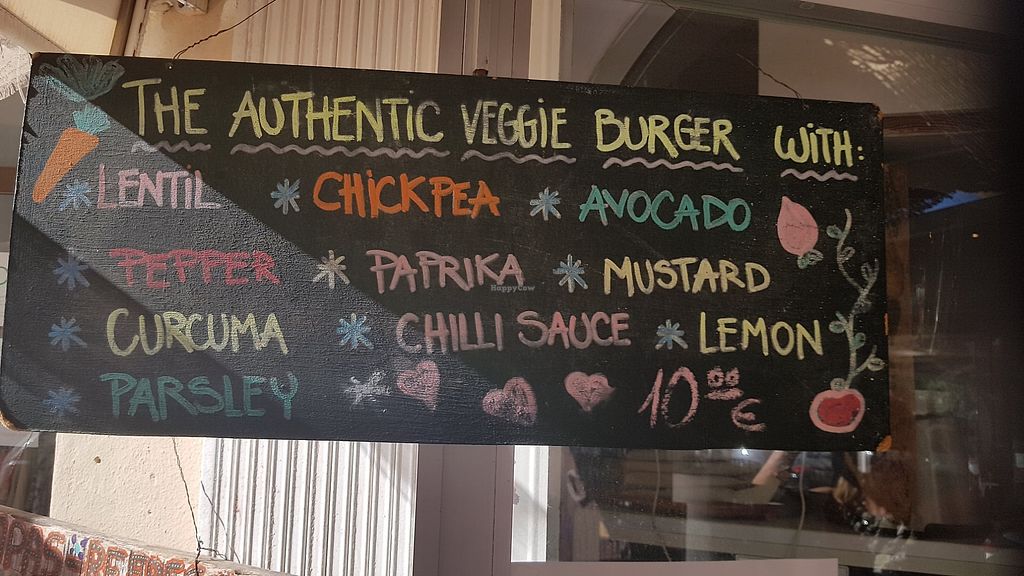 THE AUTHENTIC VEGGIE BURGER WITH:
* LENTIL * CHICKPEA * AVOCADO
* PEPPER * PAPRIKA * MUSTARD
* CURCUMA * CHILLI SAUCE * LEMON
* PARSLEY * 10.00 €
HappyCow